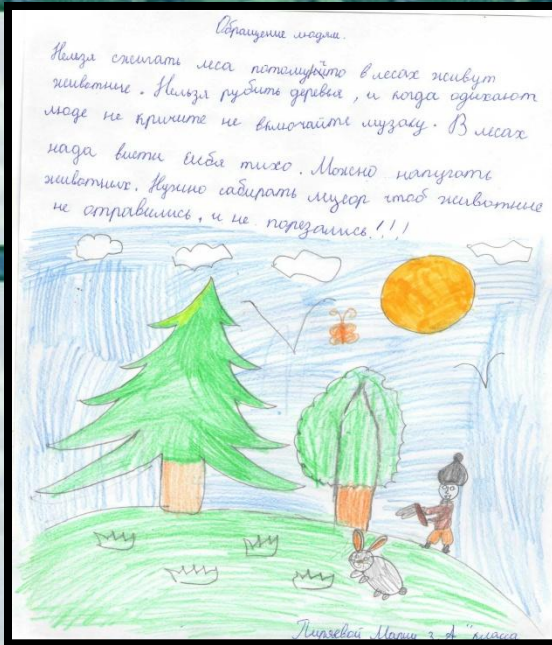 Обращение людям.
Нельзя сжигать леса потомучто в лесах живут
животные. Нельзя рубить деревья, и когда одихают
люде не кричите не включайте музаку. В лесах
нада висти сибя тихо. Можно напугать
животных. Нужно сабирать мусор чтоб животные
не отравились, и не порезались!!!
Марии 3 "А" класа